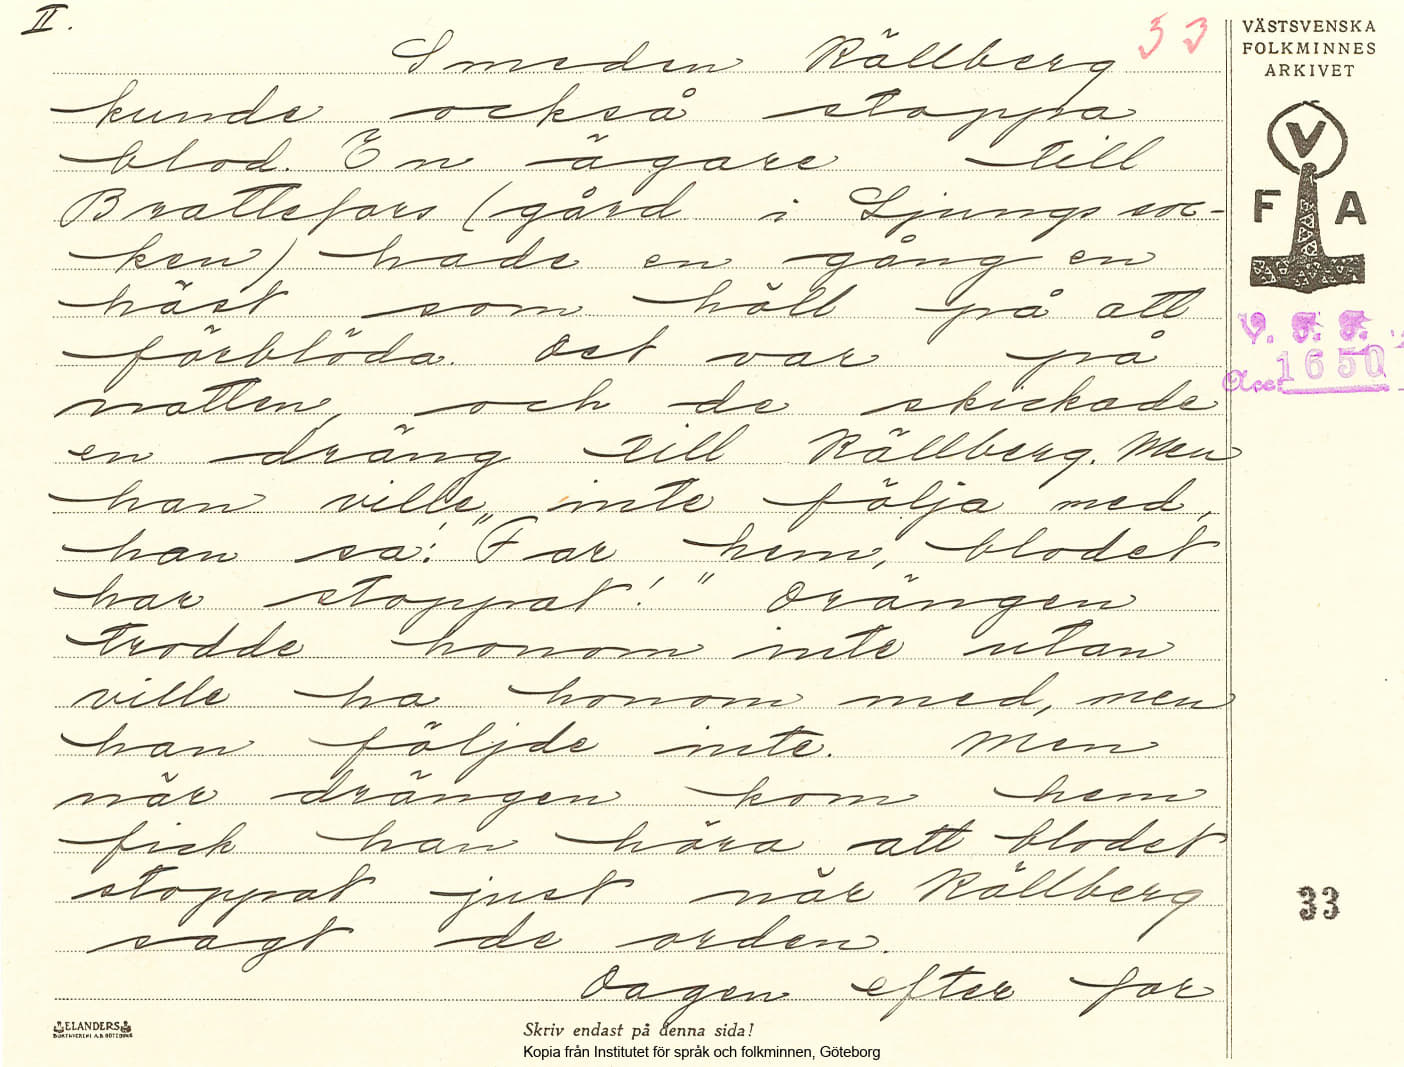 II.
33
Smeden Källberg
kunde också stoppa
blod. En ägare till
Brattefors (gård i Ljungs soc-
ken) hade en gång en
häst som höll på att
förblöda. Det var på
natten, och de skickade
en dräng till Källberg. Men
han ville inte följa med,
han sa: "Far hem, blodet
har stoppat!" Drängen
trodde honom inte utan
ville ha honom med, men
han följde inte. Men
när drängen kom hem
fick han höra att blodet
stoppat just när Källberg
sagt de orden.
Dagen efter for
VÄSTSVENSKA
FOLKMINNES
ARKIVET
V
F A
V. F. F.
Acc. 1650
33
ELANDERS
Skriv endast på denna sida!
Kopia från Institutet för språk och folkminnen, Göteborg